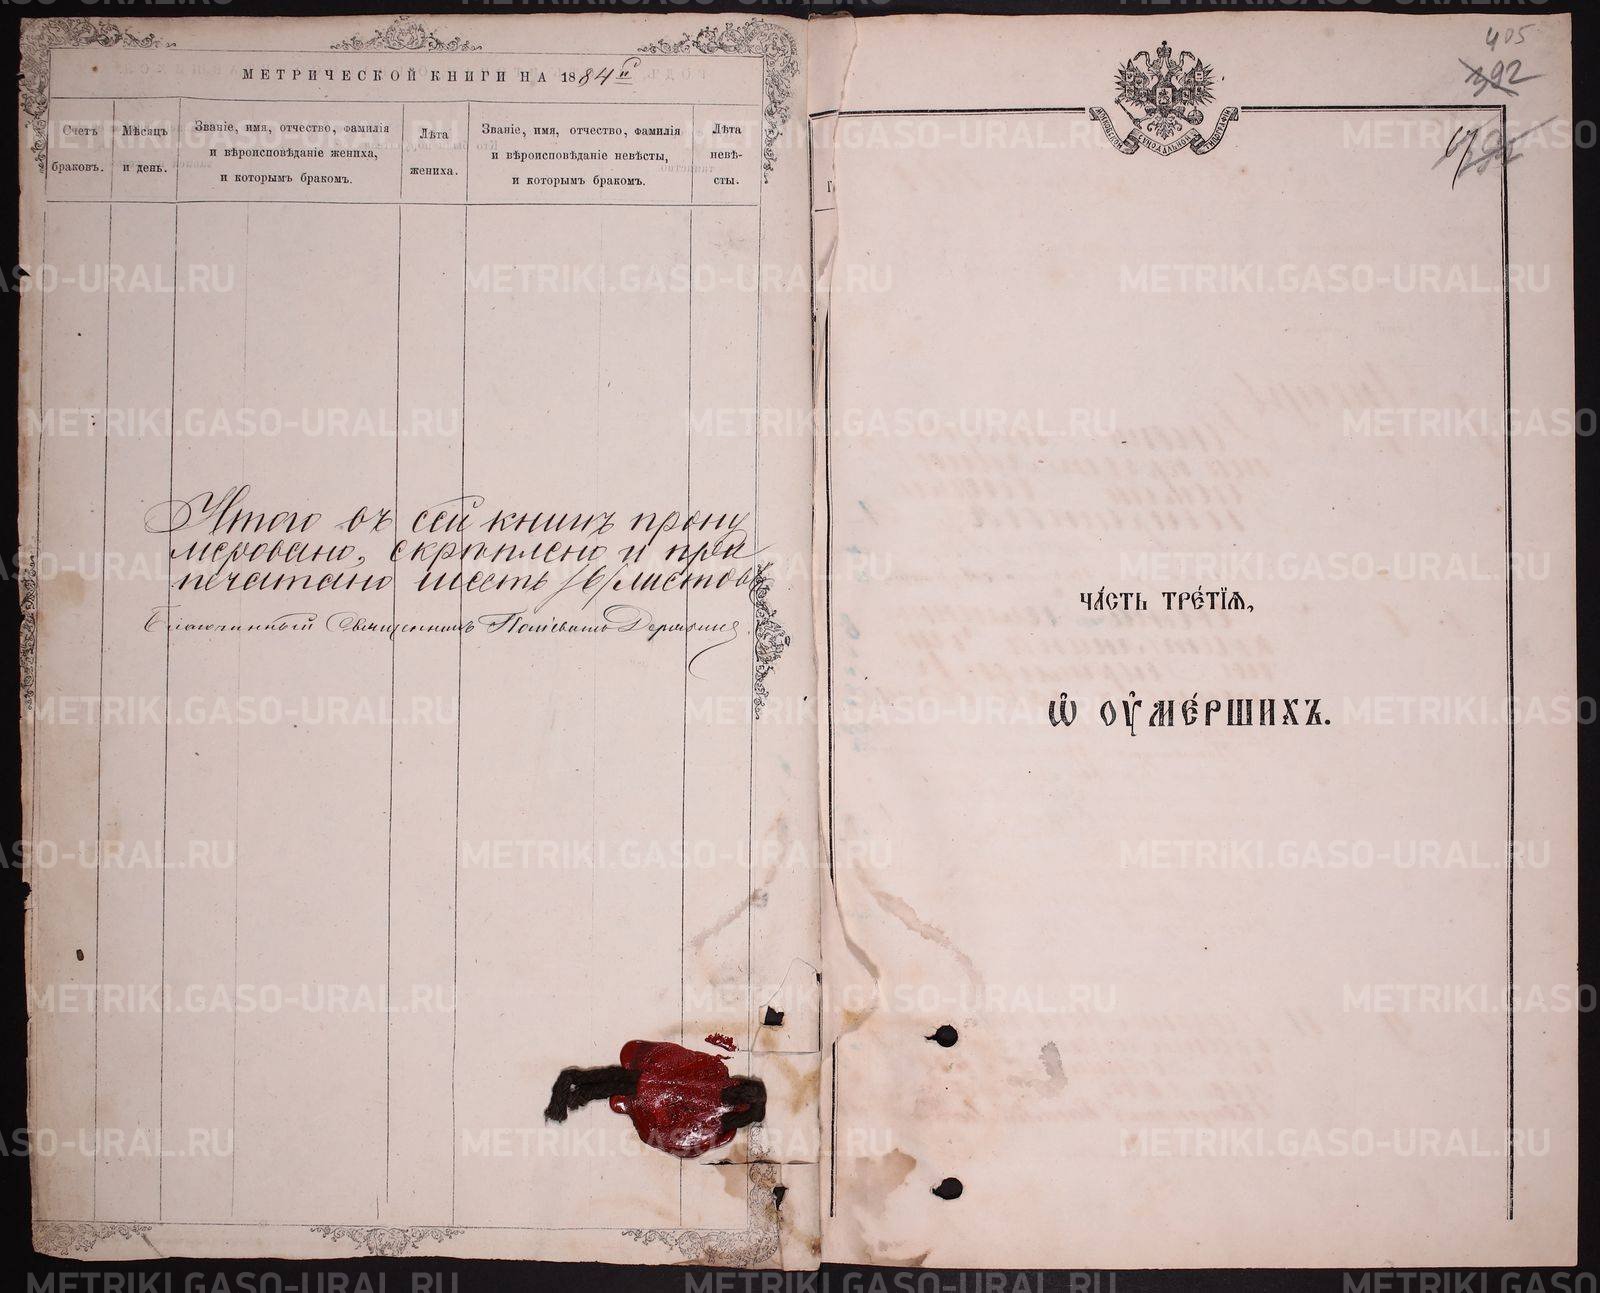 МЕТРИЧЕСКОЙ КНИГИ НА 1884й
Счетъ браковъ.
Мѣсяцъ и день.
Званіе, имя, отчество, фамилія и вѣроисповѣданіе жениха, и которымъ бракомъ.
Лѣта жениха.
Званіе, имя, отчество, фамилія и вѣроисповѣданіе невѣсты, и которымъ бракомъ.
Лѣта невѣсты.
Итого въ сей книгѣ прону
меровано, скрѣплено и при
печатано шесть /6/ листовъ
Благочинный Священникъ
405
392
67
ЧА́СТЬ ТРЕ́ТЇѦ,
Ѽ ОУ҆МЕ́РШИХЪ.
METRIKI.GASO-URAL.RU